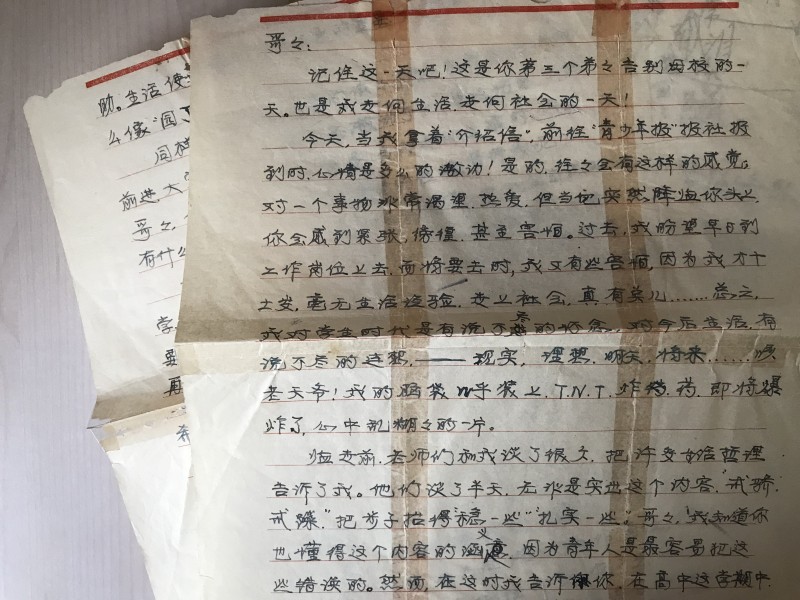 助。生活使
么像"园丁
同样
前进,大
哥々,
有什么
学
要
再
哥々:
记住这一天吧!这是你第三个弟々告别母校的一
天。也是我走向生活,走向社会的一天!
今天,当我拿着"介绍信",前往"青少年报"报社报
到时,心情是多么的激动!是的,往々会有这样的感觉:
对一个事物非常渴望、热爱,但当它突然降临你头上,
你会感到紧张,傍徨,甚至害怕。过去,我盼望早日到
工作岗位上去,而将要去时,我又有些害怕,因为我才十
七岁,毫无生活经验,走上社会,真有点儿……总之,
我对学生时代是有说不尽的怀念,对今后生活,有
说不尽的遐想,——现实,理想,明天,将来……唉
老天爷!我的脑袋几乎装上,T.N.T.炸药,即将爆
炸了,心中乱糊々的一片。
临走前,老师们和我谈了很久,把许多女生哲理
告诉了我。他们谈了半天,左不是突出这个内容,"戒骄
戒躁,"把步子抬得"稳一些""扎实一些"。哥々,我知道你
也懂得这个内容的涵义,因为青年人是最容易犯这
些错误的。然而,在这时我告诉你,在高中这学期中